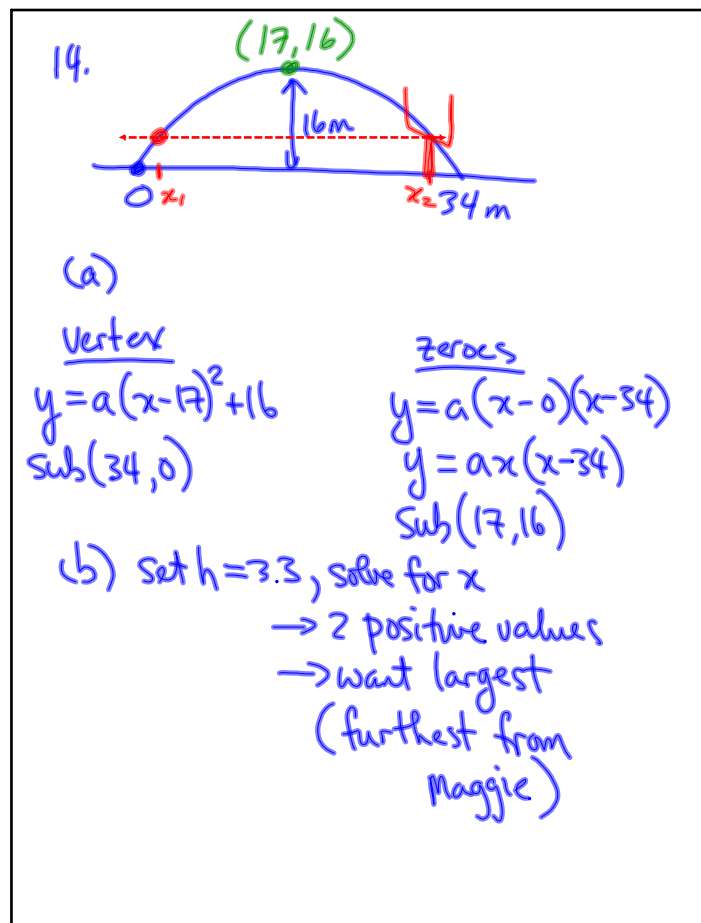 14.
(17,16)
16m
0 x₁ x₂ 34m
(a)
vertex
y=a(x-17)²+16
sub(34,0)
zeroes
y=a(x-0)(x-34)
y=ax(x-34)
sub(17,16)
(b) set h=3.3, solve for x
→ 2 positive values
→ want largest
(furthest from
Maggie)